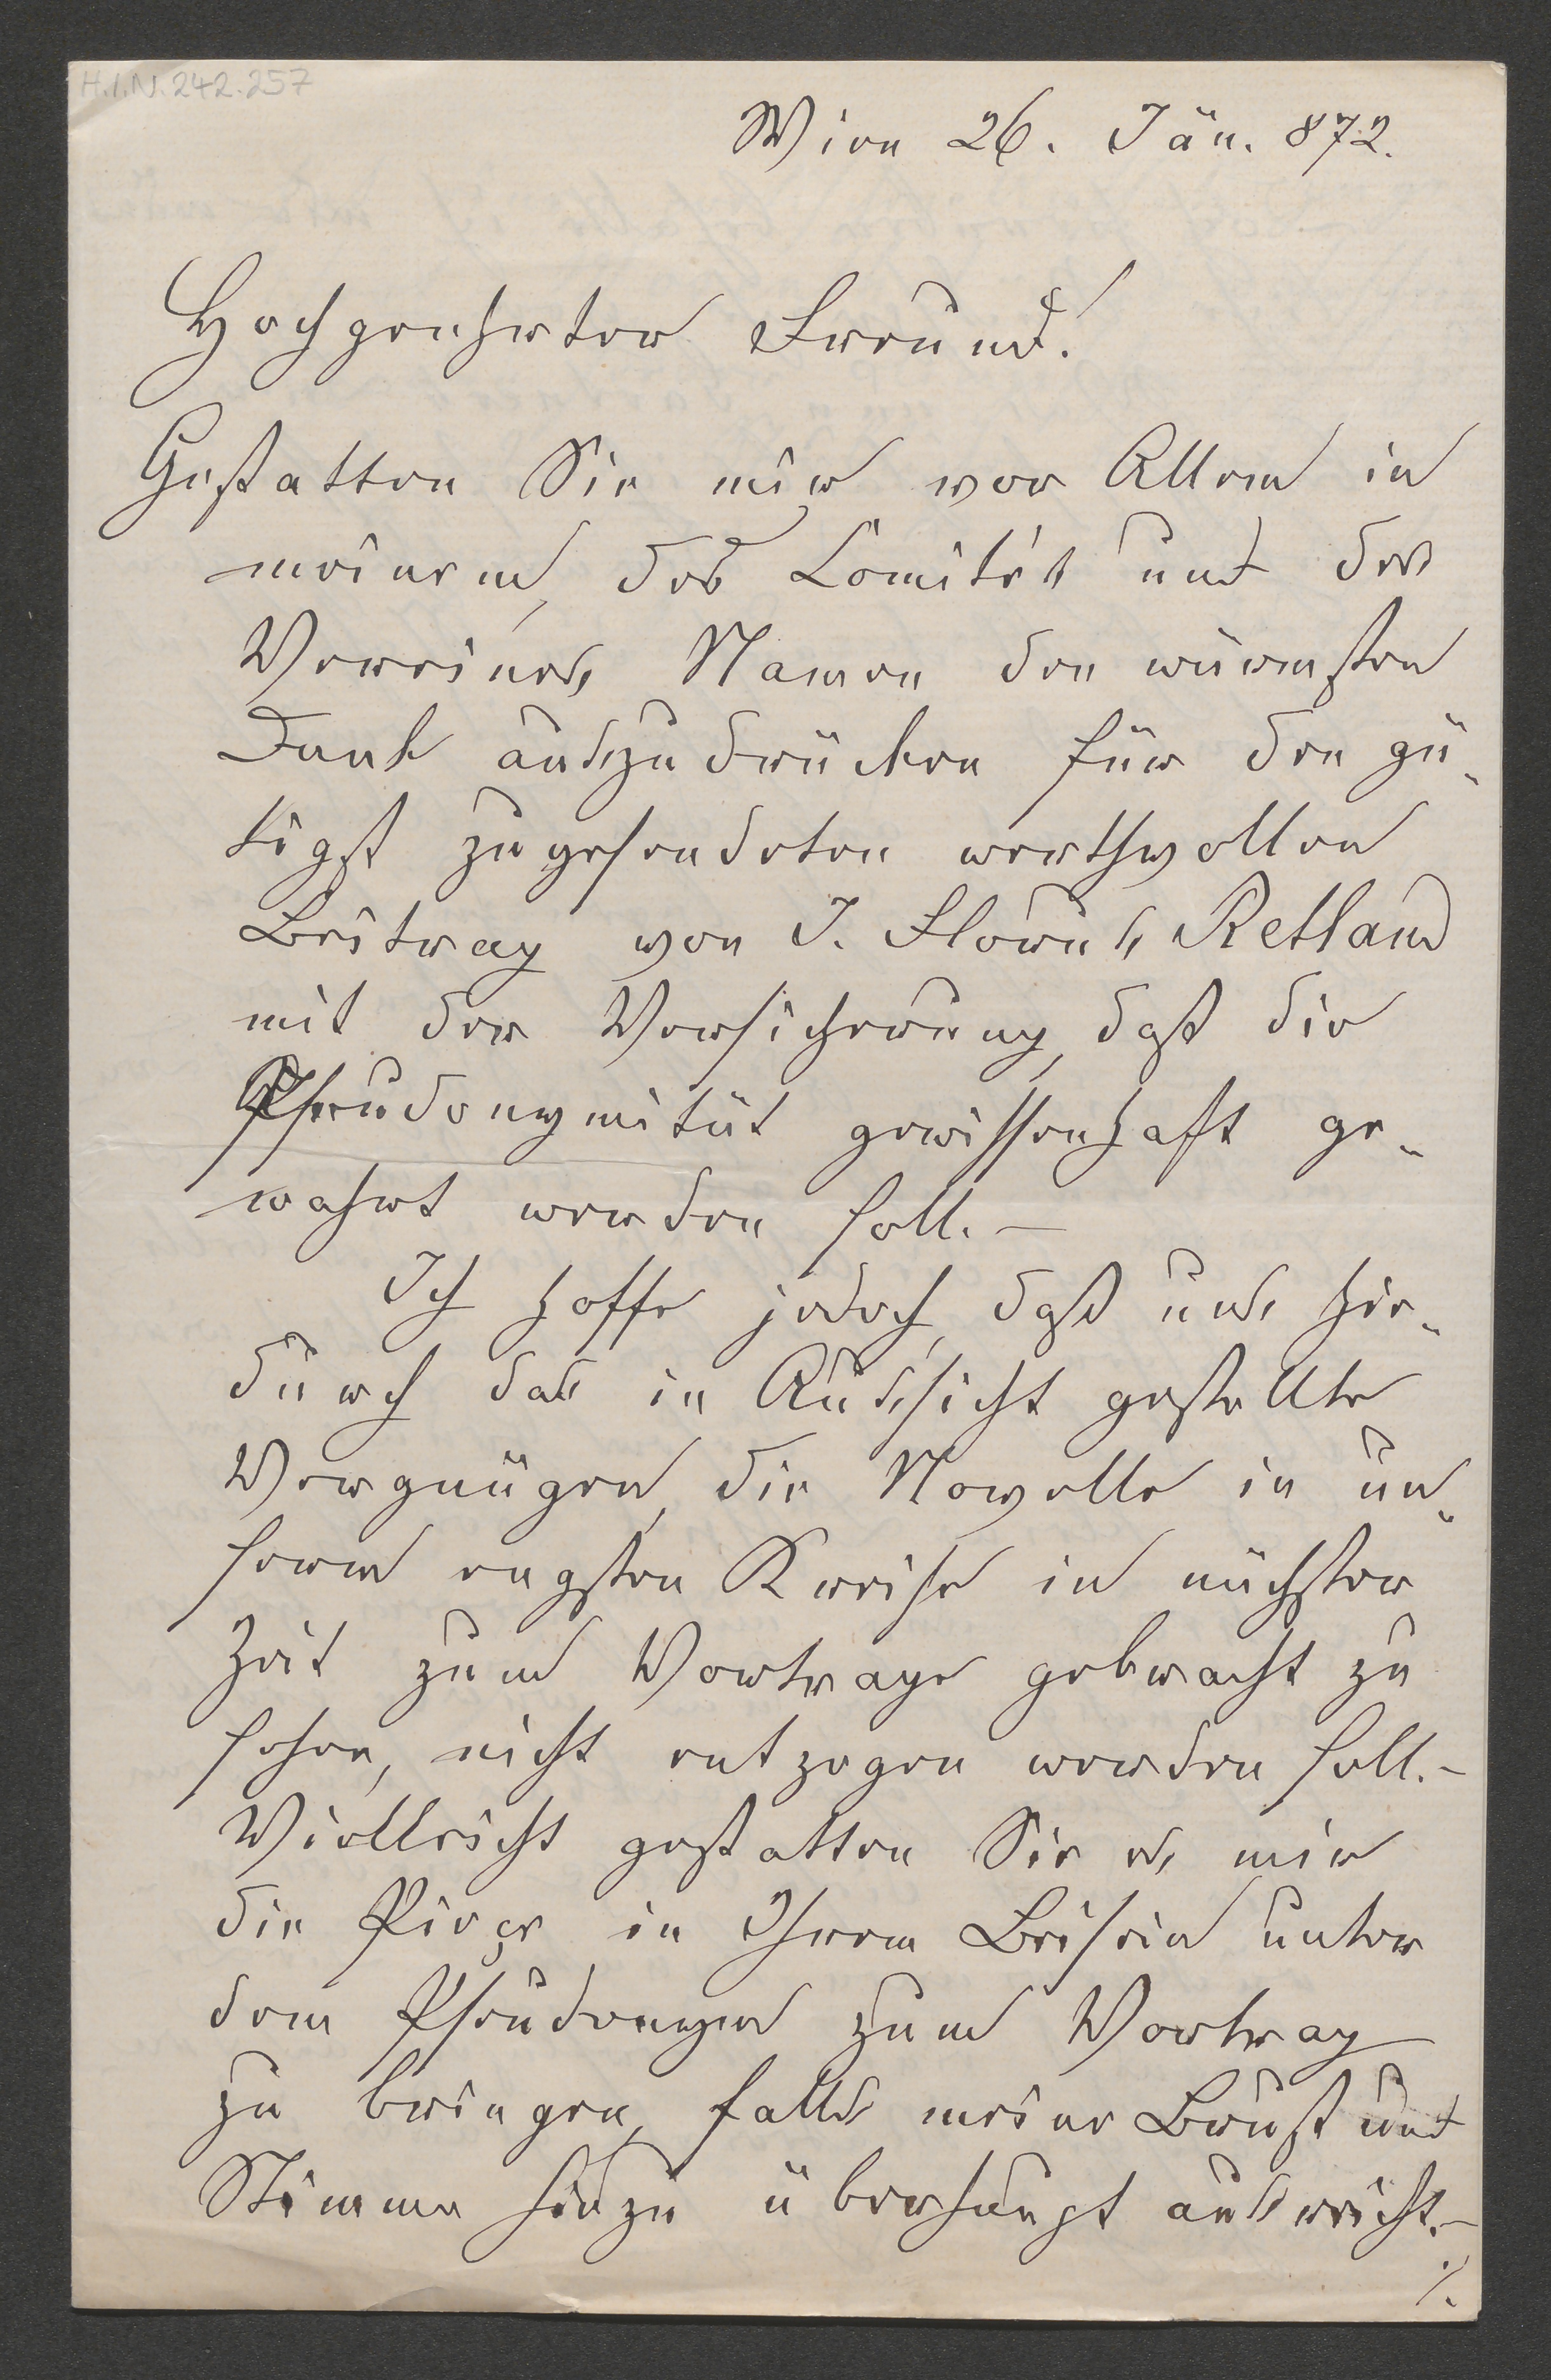 H.I.N. 242.257
Wien 26. Jän. 872.
Hochgeehrter Freund!
Gestatten Sie mir vor Allem in
meinem, des Comités und des
Vereines Namen den wärmsten
Dank auszudrücken für den gü-
tigst zugesendeten werthvollen
Beitrag von J. Retland
mit der Versicherung, daß die
Pseudonymität gewissenhaft ge-
wahrt werden soll. –
Ich hoffe jedoch, daß uns hie-
durch das in Aussicht gestellte
Vergnügen, die Novelle in un-
serm engsten Kreise in nächster
Zeit zum Vortrage gebracht zu
sehen, nicht entzogen werden soll. –
Vielleicht gestatten Sie es mir
die Pieçe in Ihrem Beisein unter
dem Pseudonym zum Vortrag
zu bringen, falls meine Brust und
Stimme hiezu überhaupt ausreicht. –
./.